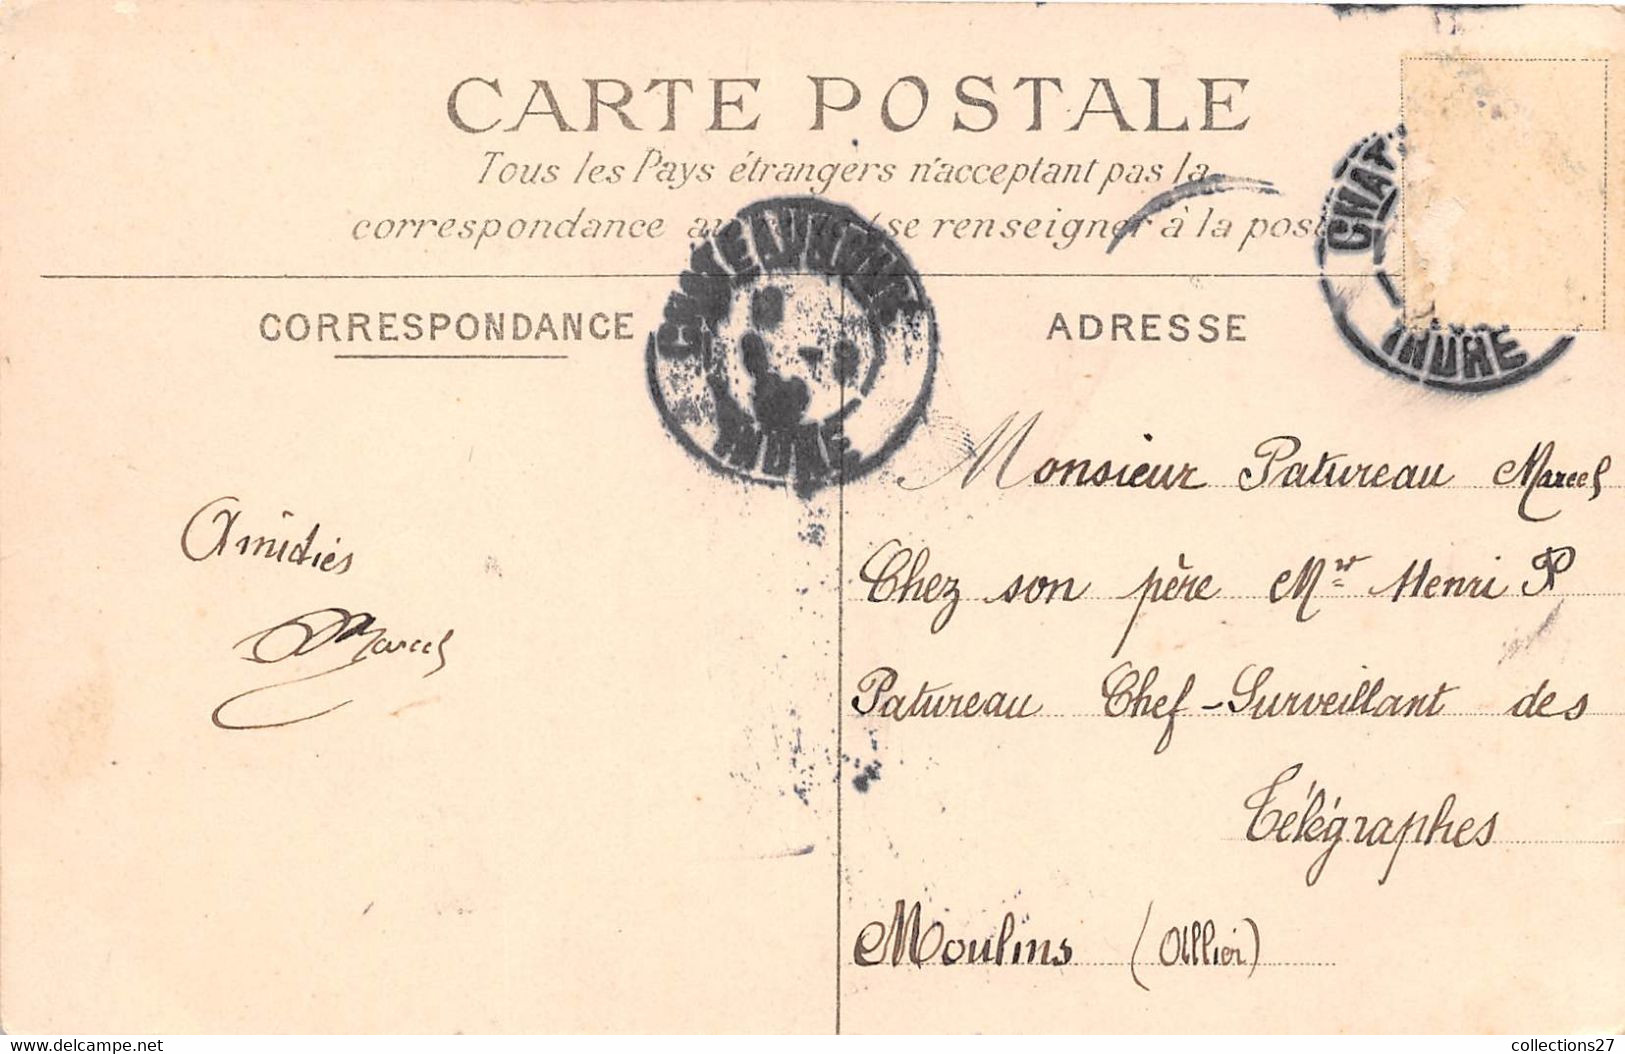 CARTE POSTALE
Tous les Pays étrangers n'acceptant pas la
correspondance au se renseigner à la poste
CORRESPONDANCE
ADRESSE
CHATEAUROUX
INDRE
CHAT
INDRE
Monsieur Patureau Marcel
Chez son père Mr Henri P
Patureau Chef-Surveillant des
Télégraphes
Moulins (Allier)
Amidiés
Marcel
collections27